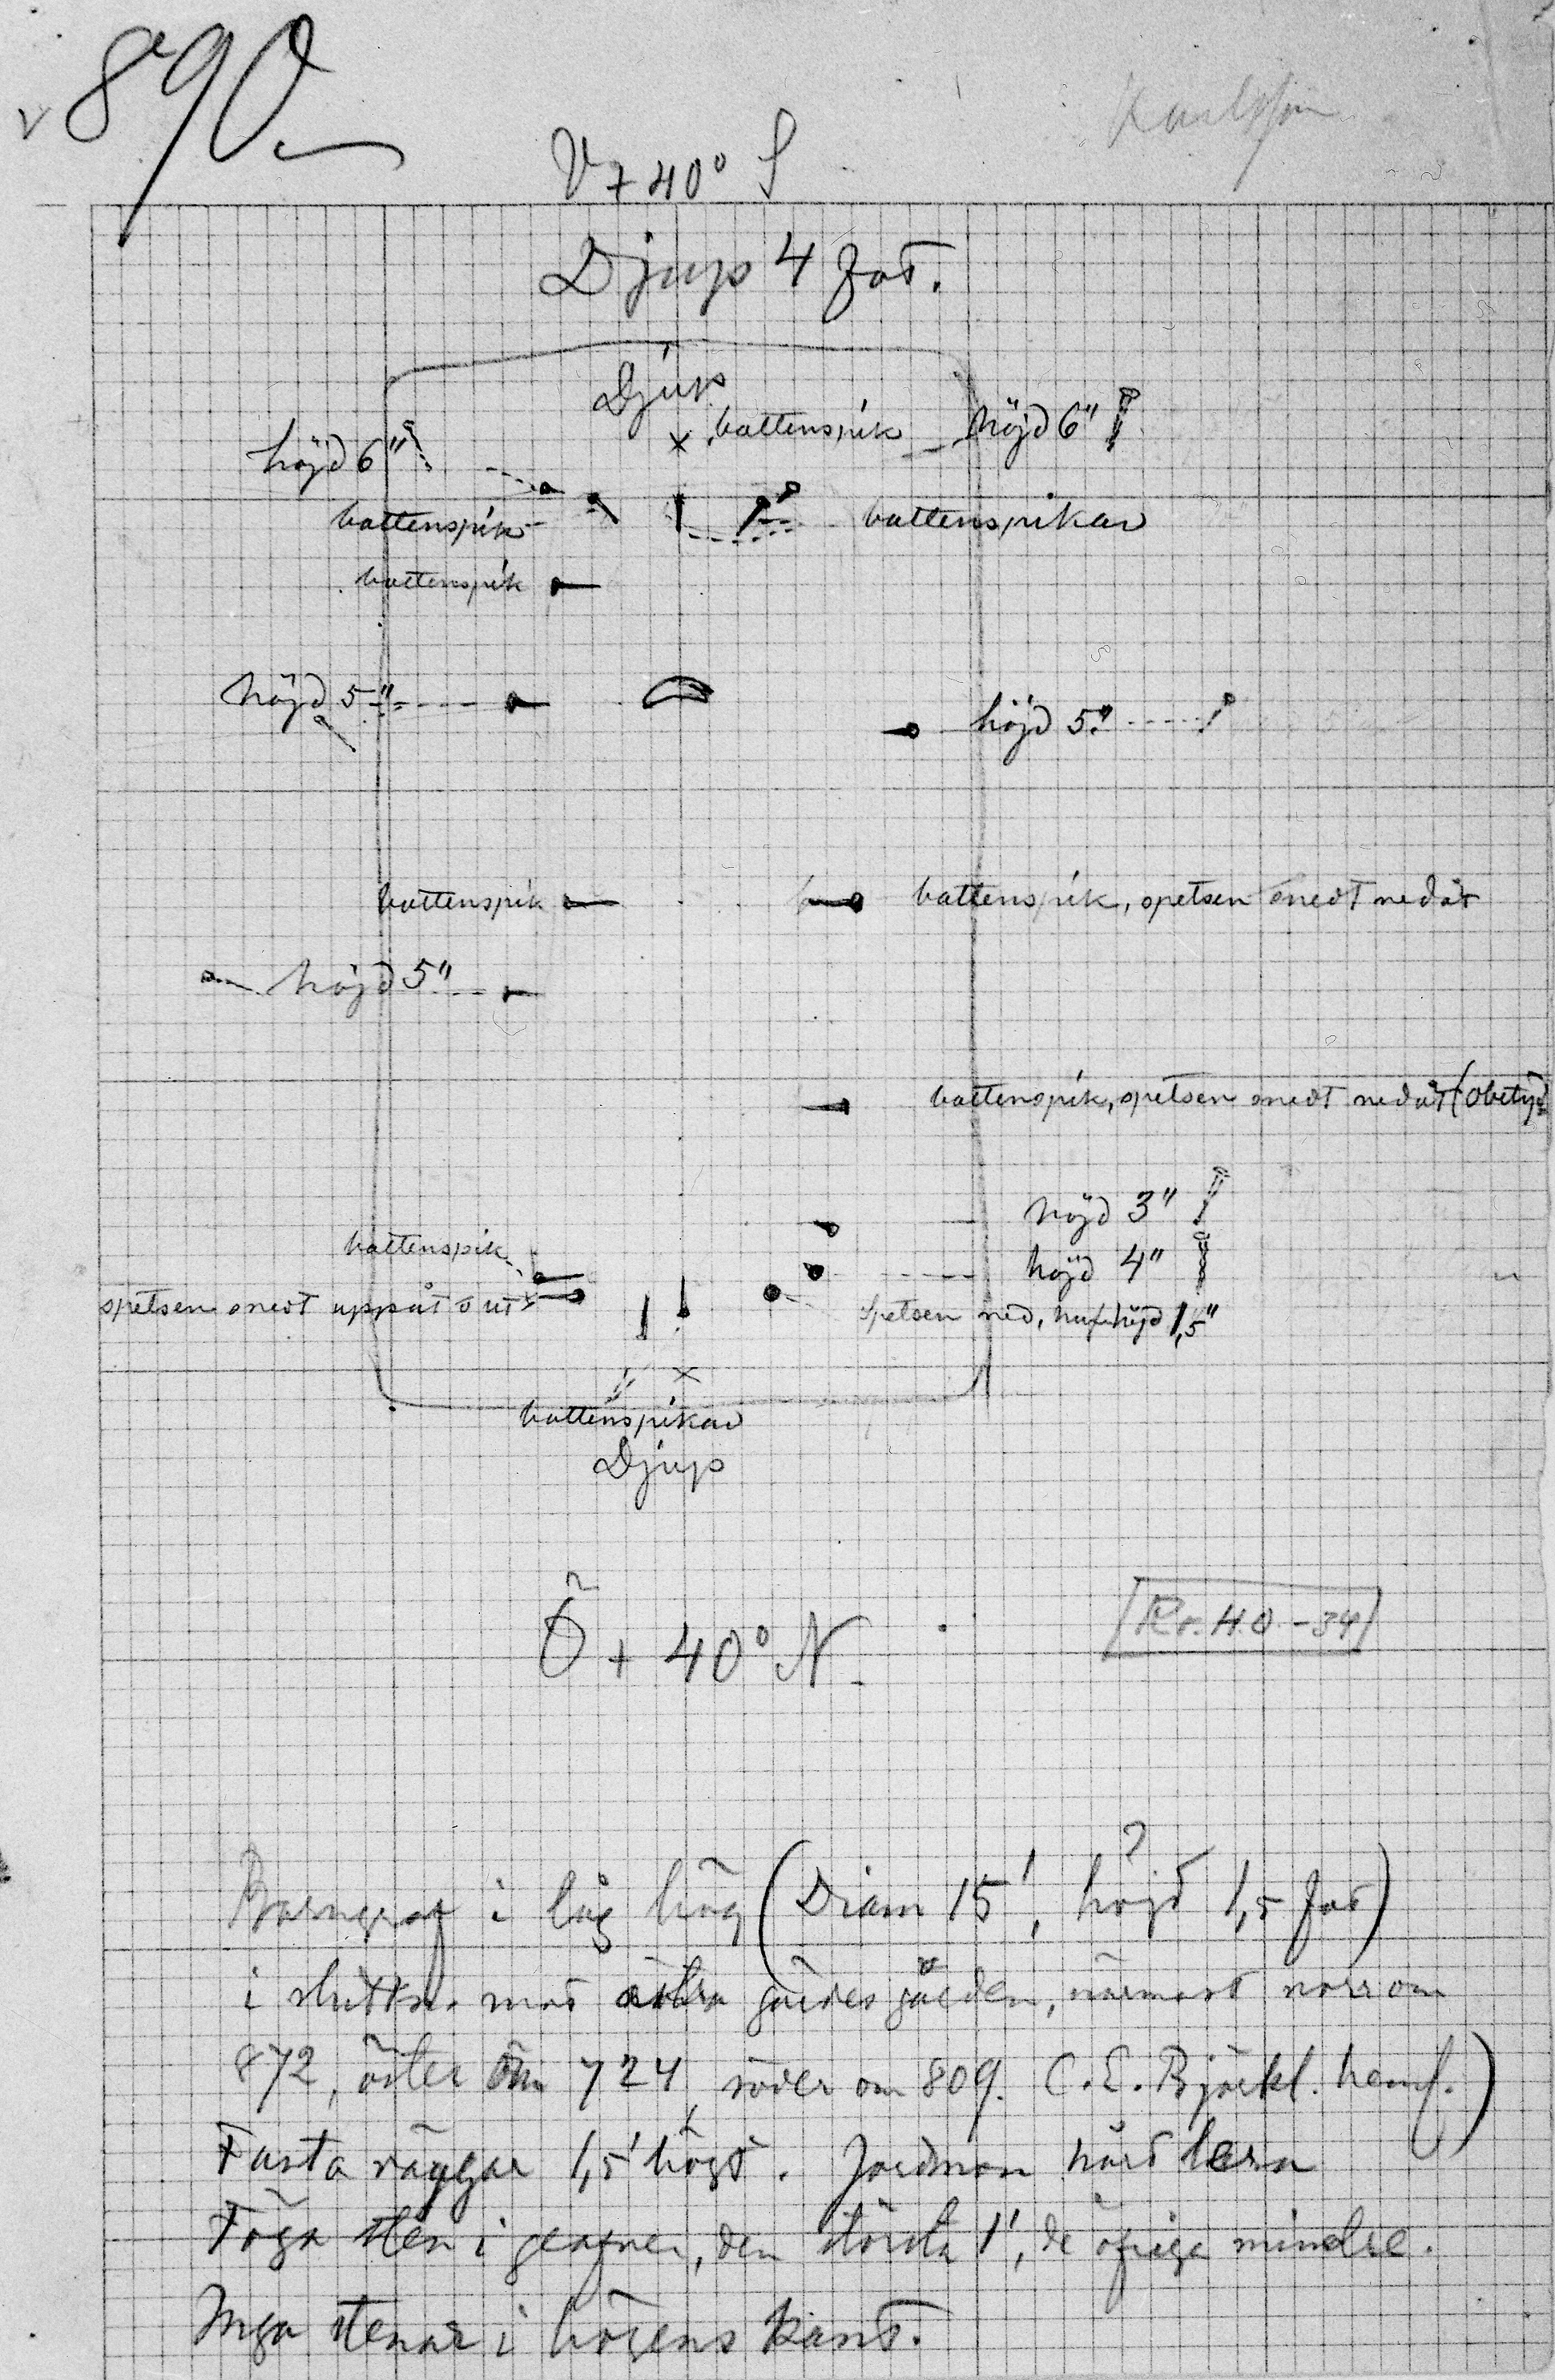 890
V + 40° S
Djup 4 fot.
Djup
bottenspik höjd 6"
höjd 6"
bottenspik bottenspikar
bottenspik
höjd 5" höjd 5"
bottenspik bottenspik, spetsen snedt nedåt
höjd 5"
bottenspik, spetsen snedt nedåt (obetyd
höjd 3"
bottenspik höjd 4"
spetsen snedt uppåt o ut spetsen ned, hufhöjd 1,5"
bottenspikar
Djup
Ö + 40° N.
Barngraf i låg hög (Diam 15', höjd ? 1,5 fot)
i sluttn. mot östra gärdesgården, närmast norr om
872, öster om 724, söder om 809. C. E. Björkl. heml.)
Fasta väggar 1,5' högt. Jordmon hård lera
Föga sten i grafven, den största 1', de öfriga mindre.
Inga stenar i högens kant.